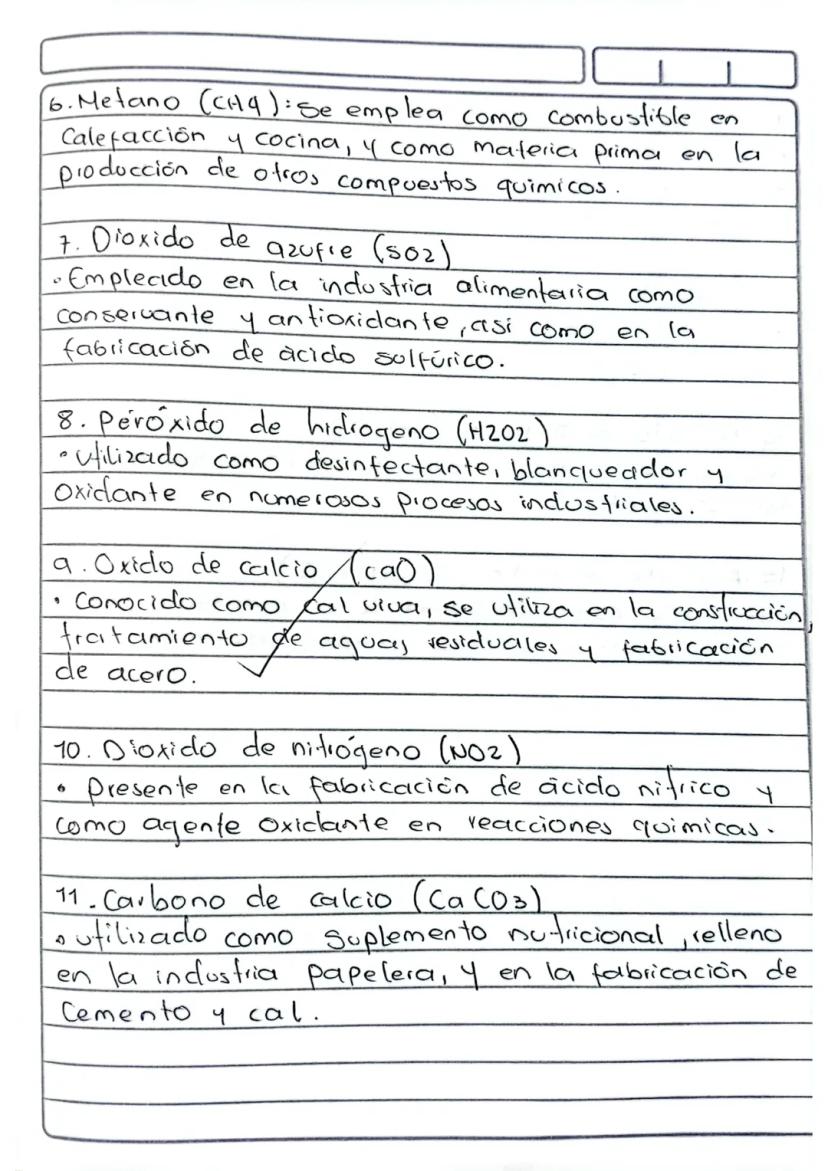 6. Metano (CH4): se emplea como combustible en
Calefacción y cocina, y como materia prima en la
producción de otros compuestos quimicos.
7. Dioxido de azufre (SO2)
• Empleado en la industria alimentaria como
conservante y antioxidante, así como en la
fabricación de ácido sulfúrico.
8. Peróxido de hidrogeno (H2O2)
• Utilizado como desinfectante, blanqueador y
Oxidante en numerosos procesos industriales.
9. Oxido de calcio (CaO)
• Conocido como Cal viva, se utiliza en la construcción,
tratamiento de aguas residuales y fabricación
de acero.
10. Dioxido de nitrógeno (NO2)
• Presente en la fabricación de ácido nitrico y
como agente Oxidante en reacciones quimicas.
11. Carbono de calcio (CaCO3)
• utilizado como Suplemento nutricional, relleno
en la industria papelera, y en la fabricación de
Cemento y cal.